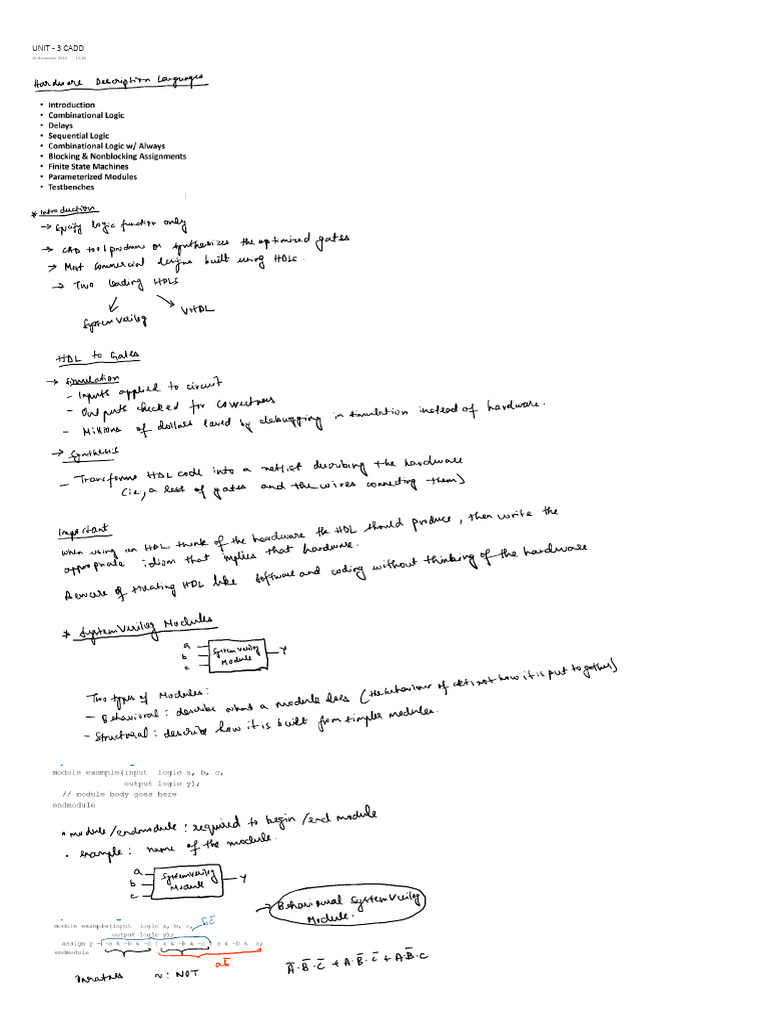 UNIT - 3 CADD
Hardware Description Languages
• Introduction
• Combinational Logic
• Delays
• Sequential Logic
• Combinational Logic w/ Always
• Blocking & Nonblocking Assignments
• Finite State Machines
• Parameterized Modules
• Testbenches
* Introduction
→ Specify logic function only
→ CAD tool produces or synthesizes the optimized gates
→ Most commercial designs built using HDLs.
→ Two leading HDLS
System Verilog
VHDL
HDL to Gates
→ Simulation
- Inputs applied to circuit
- Outputs checked for correctness
- Millions of dollars saved by debugging in simulation instead of hardware.
→ Synthesis
- Transforms HDL code into a netlist describing the hardware
(ie, a list of gates and the wires connecting them)
Important
when using an HDL, think of the hardware the HDL should produce, then write the
appropriate idiom that implies that hardware.
Beware of treating HDL like software and coding without thinking of the hardware
* System Verilog Modules
a
b
c
System Verilog
Module
y
Two types of Modules:
- Behavioral: describe what a module does (the behaviour of ckts, not how it is put together)
- Structural: describe how it is built from simpler modules.
module example(input logic a, b, c,
output logic y);
// module body goes here
endmodule
• module/endmodule: required to begin/end module
• example: name of the module.
a
b
c
System Verilog
Module
y
→ Behavioral System Verilog
Module.
b̅c̅
module example(input logic a, b, c,
output logic y);
assign y = ~a & ~b & ~c | a & ~b & ~c | a & ~b & c;
endmodule
ab̅
~: NOT
A̅·B̅·C̅ + A·B̅·C̅ + A·B̅·C